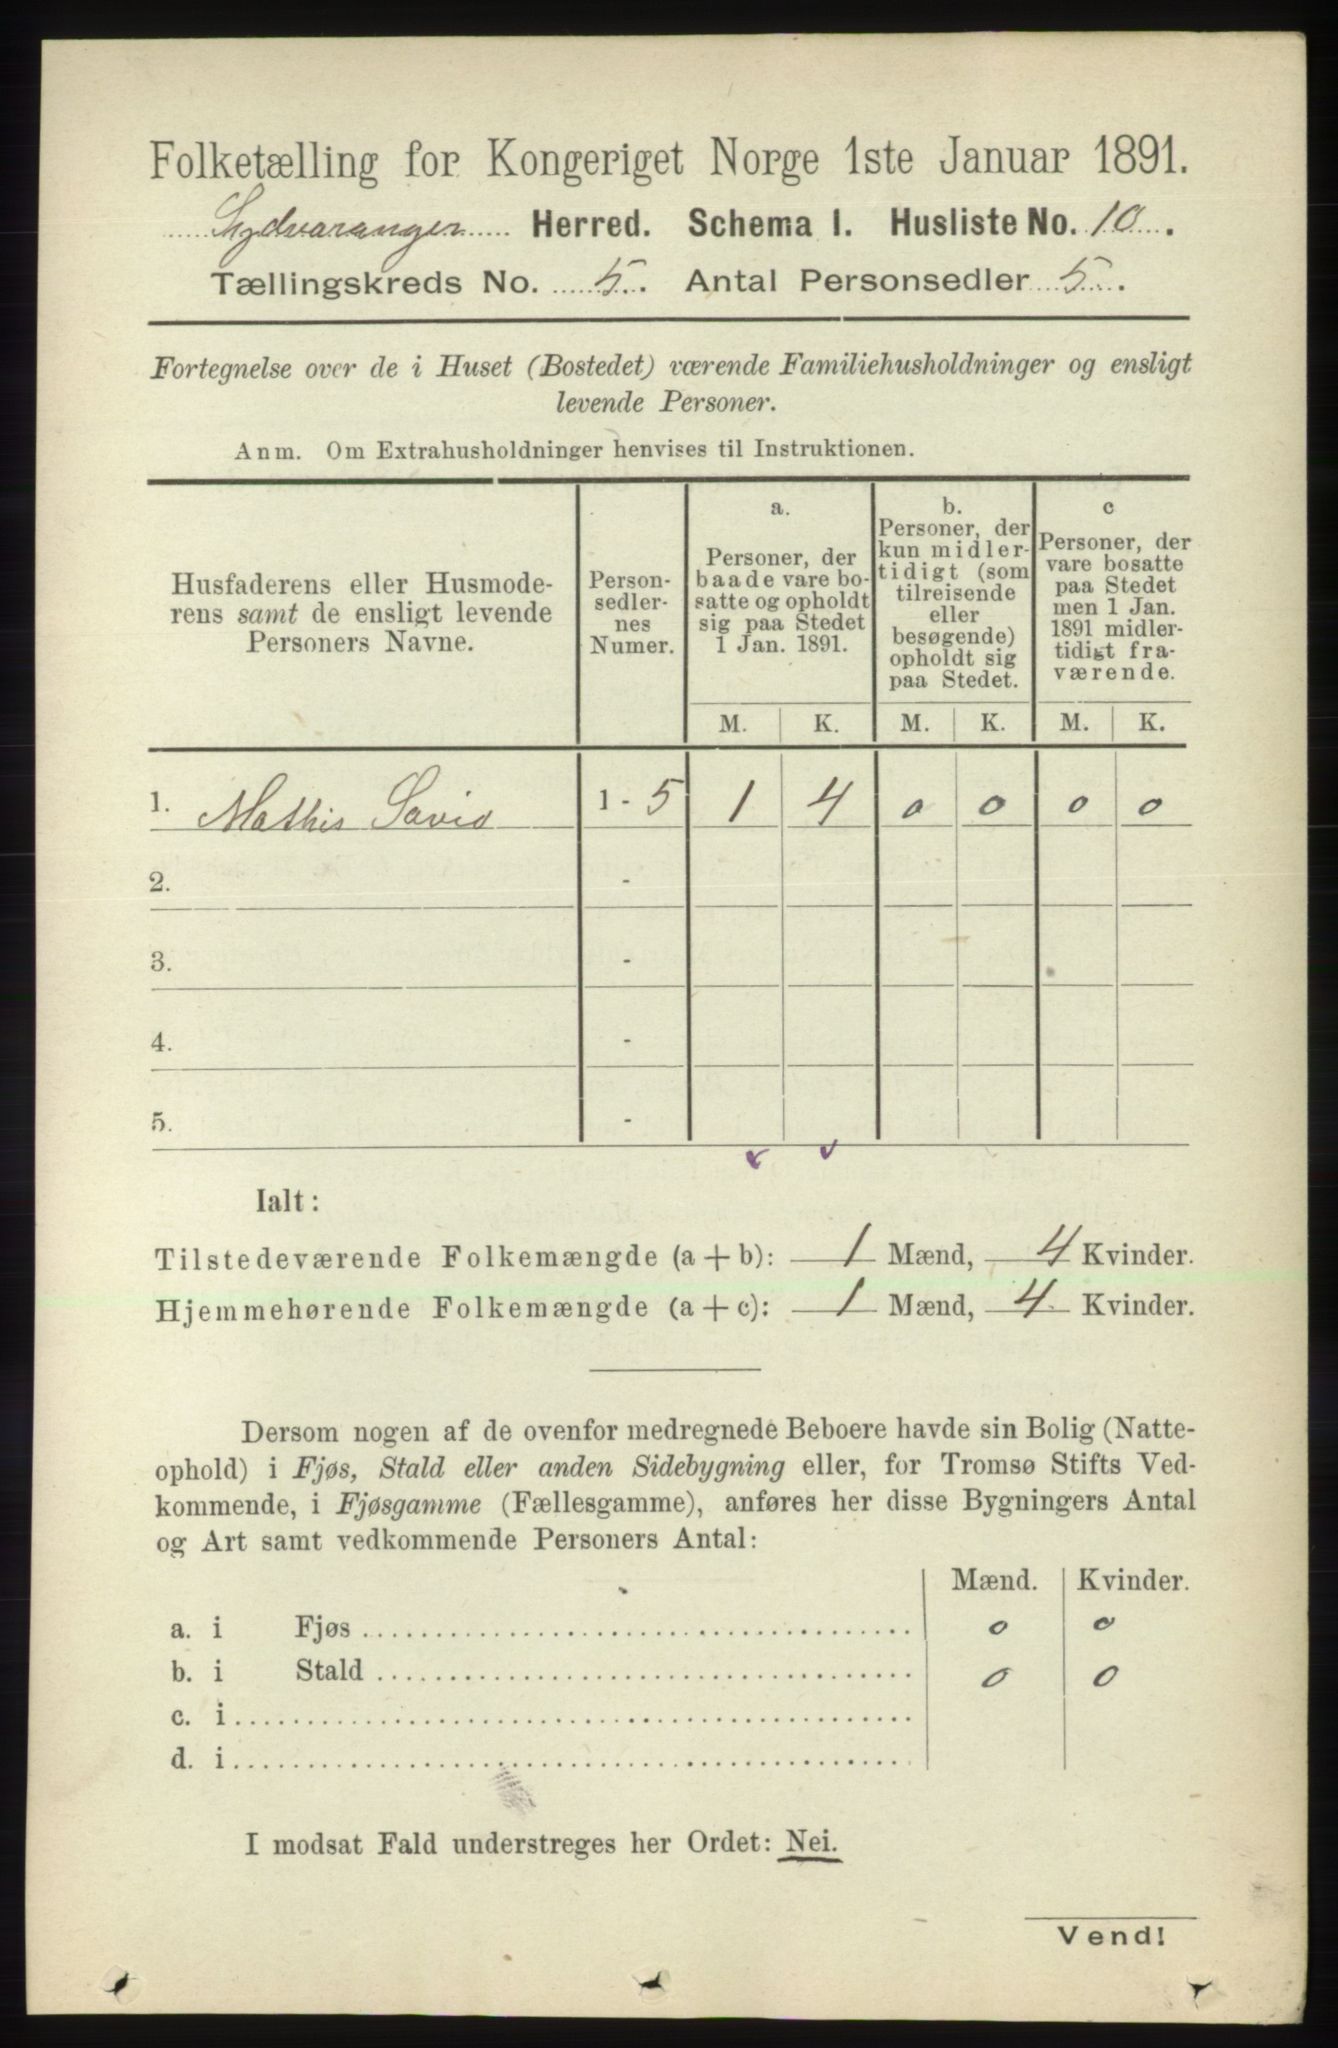 Folketælling for Kongeriget Norge 1ste Januar 1891.
Sydvaranger Herred. Schema I. Husliste No. 10.
Tællingskreds No. 5. Antal Personsedler 5.
Fortegnelse over de i Huset (Bostedet) værende Familiehusholdninger og ensligt
levende Personer.
Anm. Om Extrahusholdninger henvises til Instruktionen.
Husfaderens eller Husmode-
rens samt de ensligt levende
Personers Navne.
Person-
sedler-
nes
Numer.
a.
Personer, der
baade vare bo-
satte og opholdt
sig paa Stedet
1 Jan. 1891.
b.
Personer, der
kun midler-
tidigt (som
tilreisende
eller
besøgende)
opholdt sig
paa Stedet.
c
Personer, der
vare bosatte
paa Stedet
men 1 Jan.
1891 midler-
tidigt fra-
værende.
M. K. M. K. M. K.
1. Mathis Savio 1 - 5 1 4 0 0 0 0
2. -
3. -
4. -
5. -
Ialt:
Tilstedeværende Folkemængde (a + b): 1 Mænd, 4 Kvinder.
Hjemmehørende Folkemængde (a + c): 1 Mænd, 4 Kvinder.
Dersom nogen af de ovenfor medregnede Beboere havde sin Bolig (Natte-
ophold) i Fjøs, Stald eller anden Sidebygning eller, for Tromsø Stifts Ved-
kommende, i Fjøsgamme (Fællesgamme), anføres her disse Bygningers Antal
og Art samt vedkommende Personers Antal:
Mænd. Kvinder.
a. i Fjøs 0 0
b. i Stald 0 0
c. i
d. i
I modsat Fald understreges her Ordet: Nei.
Vend!